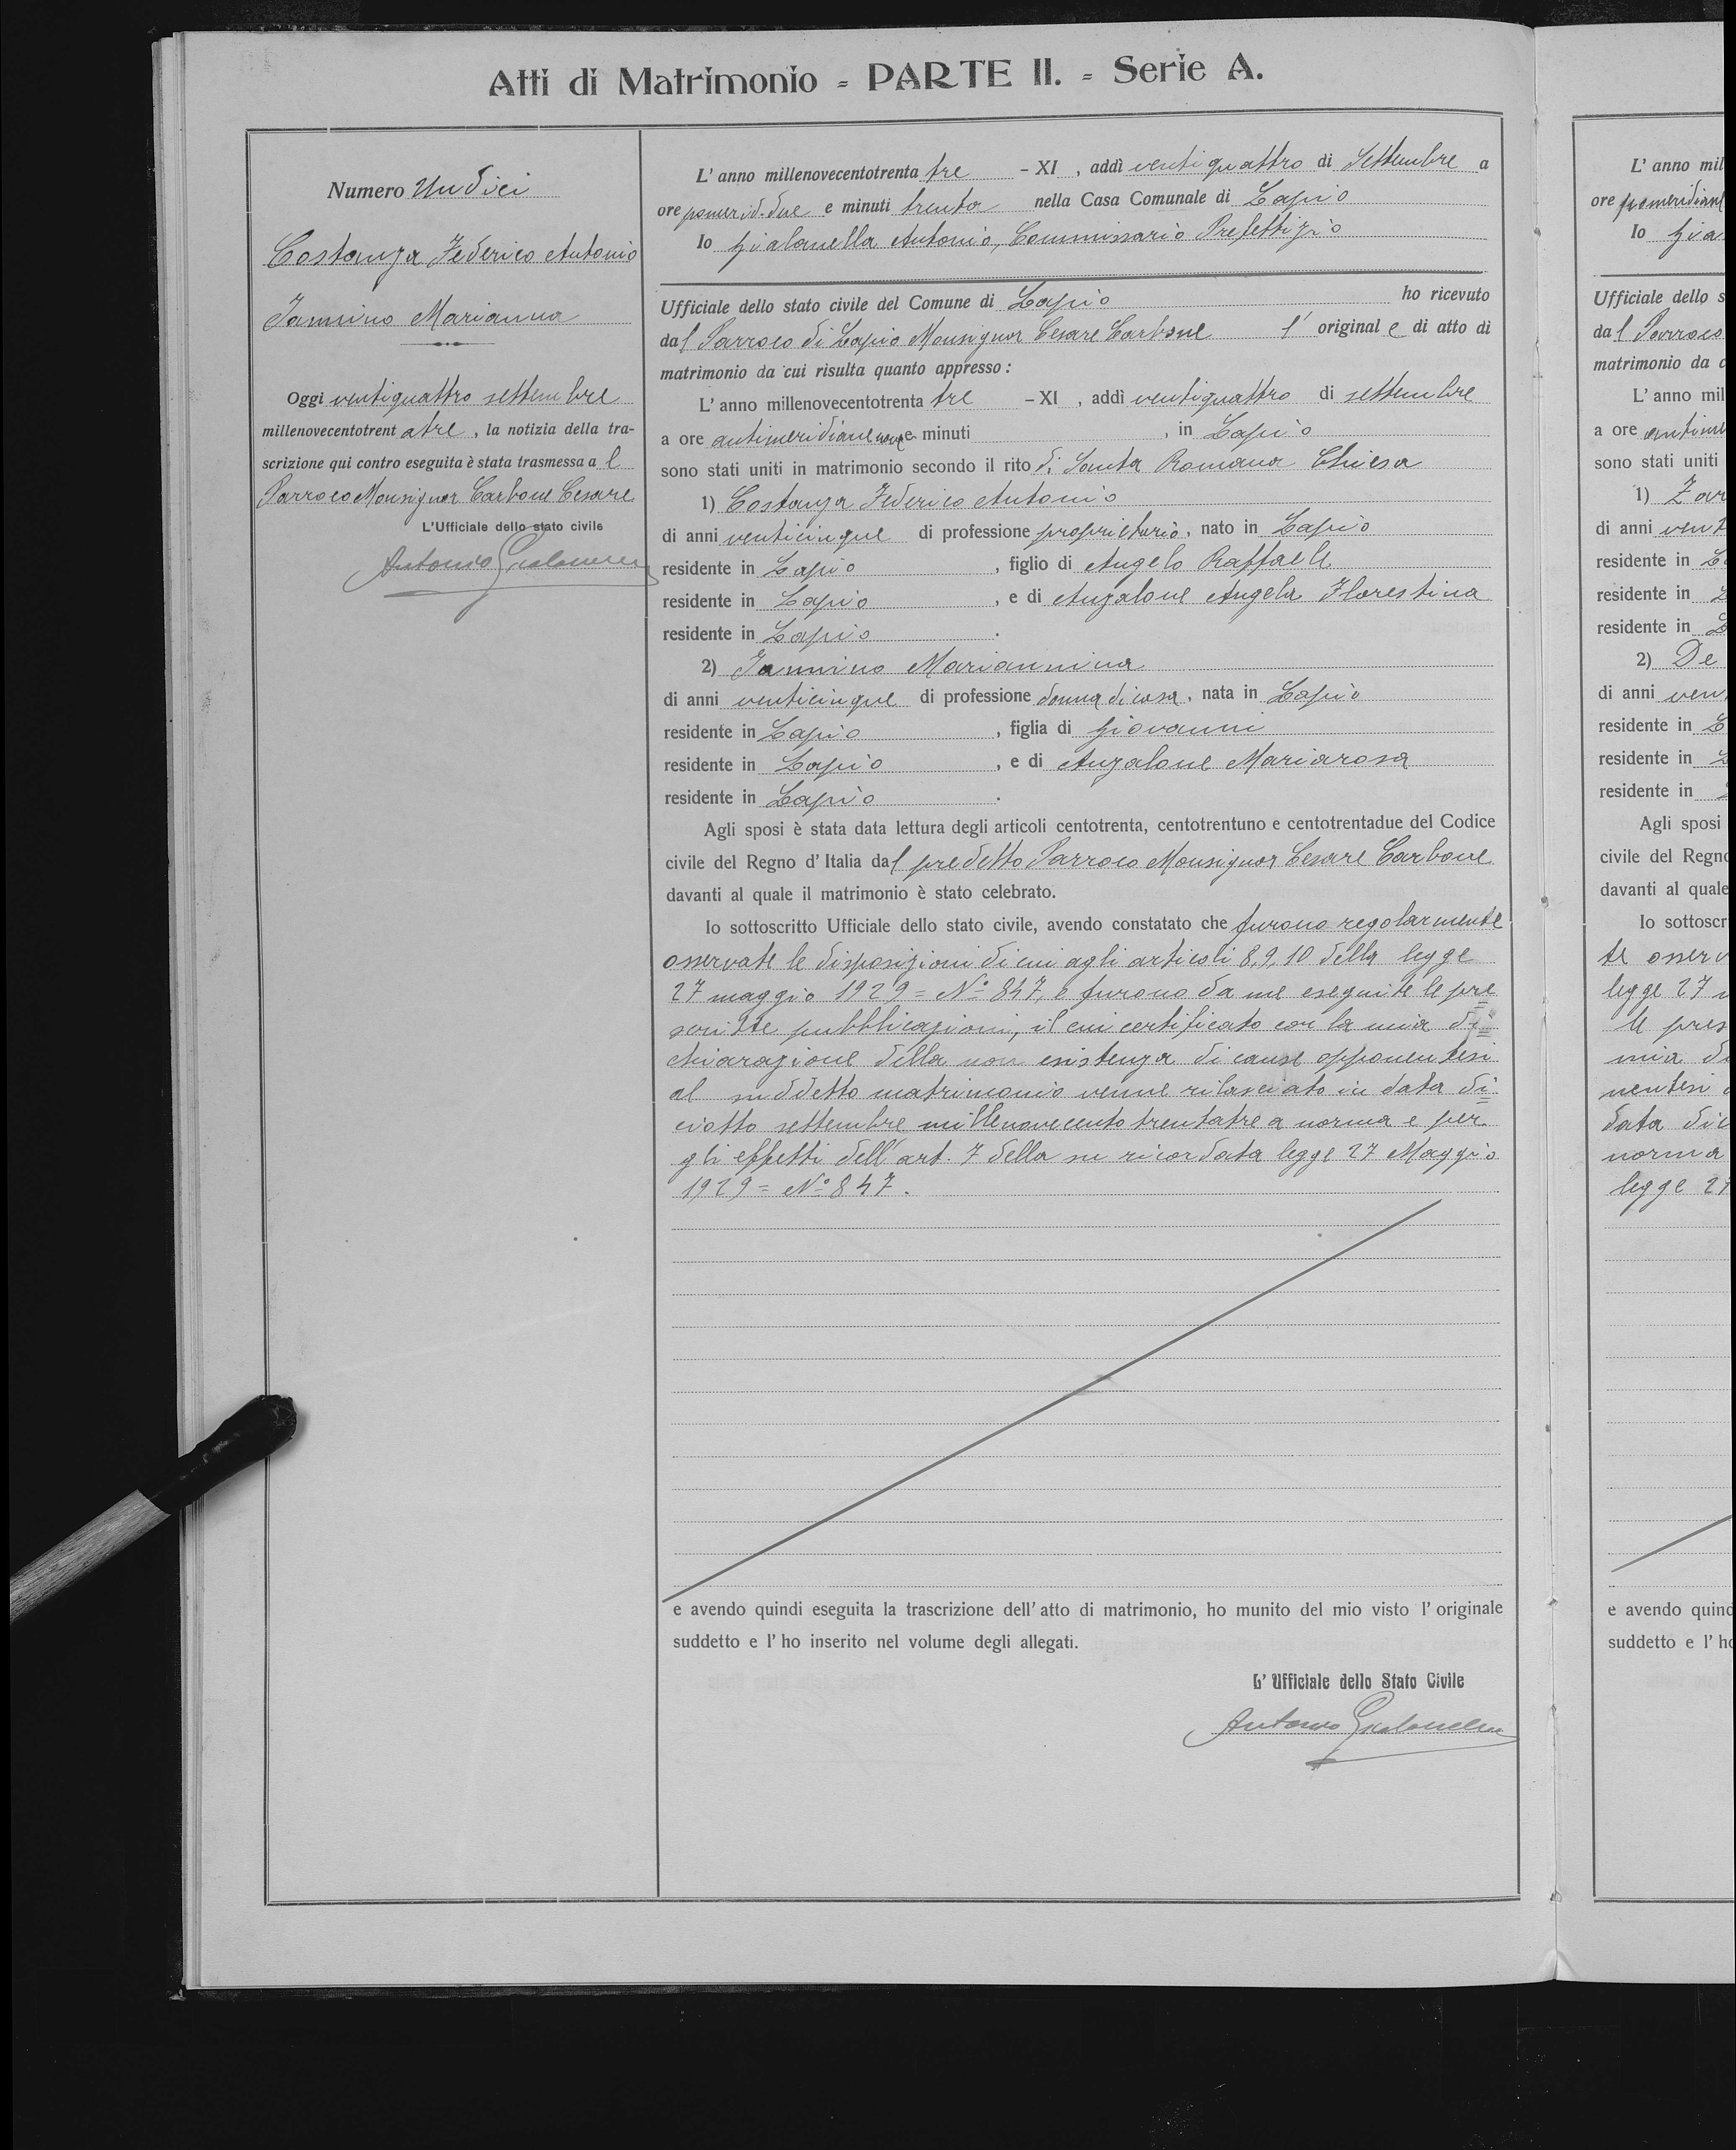 Atti di Matrimonio = PARTE II. = Serie A.
Numero Undici
Costanza Federico Antonio
Iannino Marianna
Oggi ventiquattro settembre
millenovecentotrentatre, la notizia della tra-
scrizione qui contro eseguita è stata trasmessa al
Parroco Monsignor Carbone Cesare
L'Ufficiale dello stato civile
Antonio Gialanella
L' anno millenovecentotrenta tre - XI , addì ventiquattro di Settembre a
ore pomerid. due e minuti trenta nella Casa Comunale di Lapio
Io Gialanella Antonio, Commissario Prefettizio
Ufficiale dello stato civile del Comune di Lapio ho ricevuto
dal Parroco di Lapio Monsignor Cesare Carbone l' originale di atto di
matrimonio da cui risulta quanto appresso :
L' anno millenovecentotrenta tre - XI , addì ventiquattro di settembre
a ore antimeridiane nove e minuti , in Lapio
sono stati uniti in matrimonio secondo il rito di Santa Romana Chiesa
1) Costanza Federico Antonio
di anni venticinque di professione proprietario, nato in Lapio
residente in Lapio , figlio di Angelo Raffaele
residente in Lapio , e di Anzalone Angela Florestina
residente in Lapio .
2) Iannino Mariannina
di anni venticinque di professione donna di casa, nata in Lapio
residente in Lapio , figlia di Giovanni
residente in Lapio , e di Anzalone Mariarosa
residente in Lapio .
Agli sposi è stata data lettura degli articoli centotrenta, centotrentuno e centotrentadue del Codice
civile del Regno d' Italia dal predetto Parroco Monsignor Cesare Carbone
davanti al quale il matrimonio è stato celebrato.
Io sottoscritto Ufficiale dello stato civile, avendo constatato che furono regolarmente
osservate le disposizioni di cui agli articoli 8, 9, 10 della legge
27 maggio 1929 = Nº 847, e furono da me eseguite le pre=
scritte pubblicazioni, il cui certificato con la mia di=
chiarazione della non esistenza di cause opponentesi
al suddetto matrimonio venne rilasciato in data di=
ciotto settembre millenovecentotrentatre a norma e per
gli effetti dell'art. 7 della su ricordata legge 27 Maggio
1929 = Nº 847.
e avendo quindi eseguita la trascrizione dell' atto di matrimonio, ho munito del mio visto l' originale
suddetto e l' ho inserito nel volume degli allegati.
L' Ufficiale dello Stato Civile
Antonio Gialanella
L' anno mil
ore pomeridiane
Io Gia
Ufficiale dello s
dal Parroco
matrimonio da c
L' anno mil
a ore
sono stati uniti
1) Zar
di anni vent
residente in L
residente in
residente in
2) De
di anni ven
residente in L
residente in
residente in
Agli sposi
civile del Regno
davanti al quale
Io sottoscr
te osserv
legge 27
le pres
mia di
nentesi
data dic
norma
legge 27
e avendo quind
suddetto e l' ho